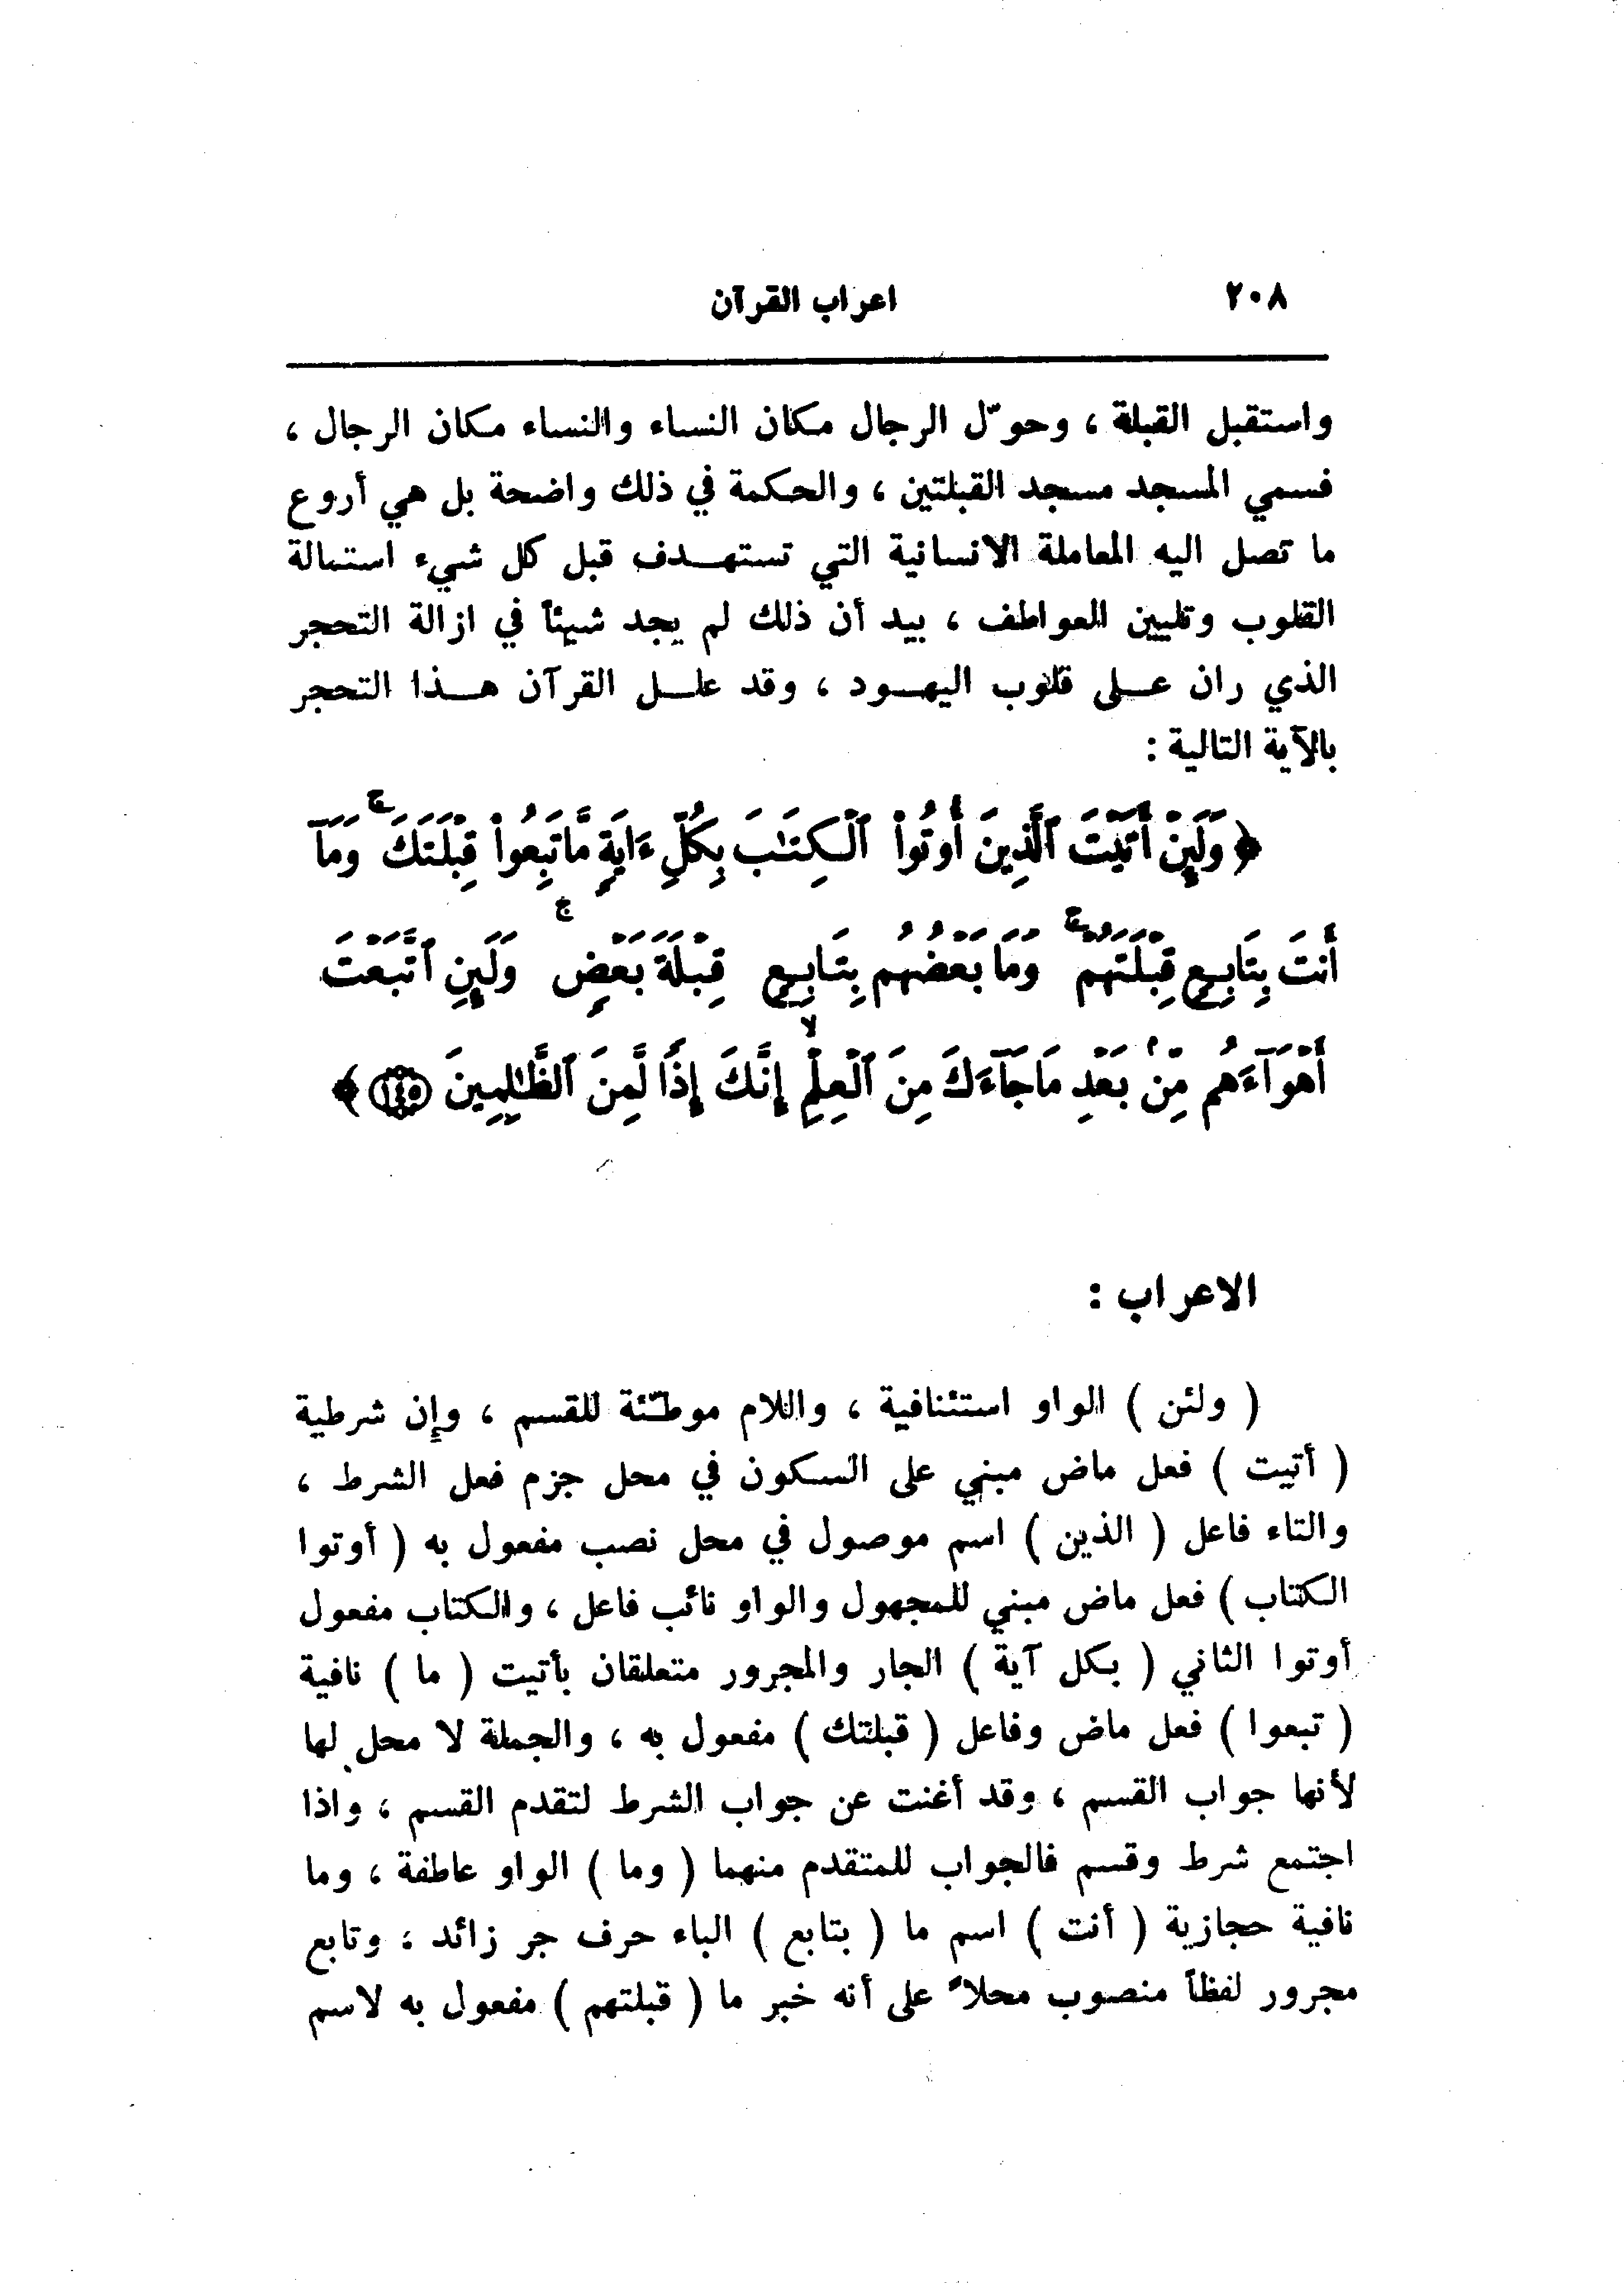 ٢٠٨
اعراب القرآن
واستقبل القبلة ، وحوّل الرجال مكان النساء والنساء مكان الرجال ،
فسمي المسجد مسجد القبلتين ، والحكمة في ذلك واضحة بل هي أروع
ما تصل اليه المعاملة الانسانية التي تستهدف قبل كل شيء استمالة
القلوب وتليين العواطف ، بيد أن ذلك لم يجد شيئاً في ازالة التحجر
الذي ران على قلوب اليهود ، وقد علل القرآن هذا التحجر
بالآية التالية :
﴿ وَلَئِنْ أَتَيْتَ ٱلَّذِينَ أُوتُوا۟ ٱلْكِتَـٰبَ بِكُلِّ ءَايَةٍ مَّا تَبِعُوا۟ قِبْلَتَكَ ۚ وَمَآ
أَنتَ بِتَابِعٍ قِبْلَتَهُمْ ۚ وَمَا بَعْضُهُم بِتَابِعٍ قِبْلَةَ بَعْضٍ ۚ وَلَئِنِ ٱتَّبَعْتَ
أَهْوَآءَهُم مِّنۢ بَعْدِ مَا جَآءَكَ مِنَ ٱلْعِلْمِ ۙ إِنَّكَ إِذًا لَّمِنَ ٱلظَّـٰلِمِينَ ١٤٥ ﴾
الاعراب :
( ولئن ) الواو استئنافية ، واللام موطّئة للقسم ، وإن شرطية
( أتيت ) فعل ماض مبني على السكون في محل جزم فعل الشرط ،
والتاء فاعل ( الذين ) اسم موصول في محل نصب مفعول به ( أوتوا
الكتاب ) فعل ماض مبني للمجهول والواو نائب فاعل ، والكتاب مفعول
أوتوا الثاني ( بكل آية ) الجار والمجرور متعلقان بأتيت ( ما ) نافية
( تبعوا ) فعل ماض وفاعل ( قبلتك ) مفعول به ، والجملة لا محل لها
لأنها جواب القسم ، وقد أغنت عن جواب الشرط لتقدم القسم ، واذا
اجتمع شرط وقسم فالجواب للمتقدم منهما ( وما ) الواو عاطفة ، وما
نافية حجازية ( أنت ) اسم ما ( بتابع ) الباء حرف جر زائد ، وتابع
مجرور لفظاً منصوب محلاً على أنه خبر ما ( قبلتهم ) مفعول به لاسم